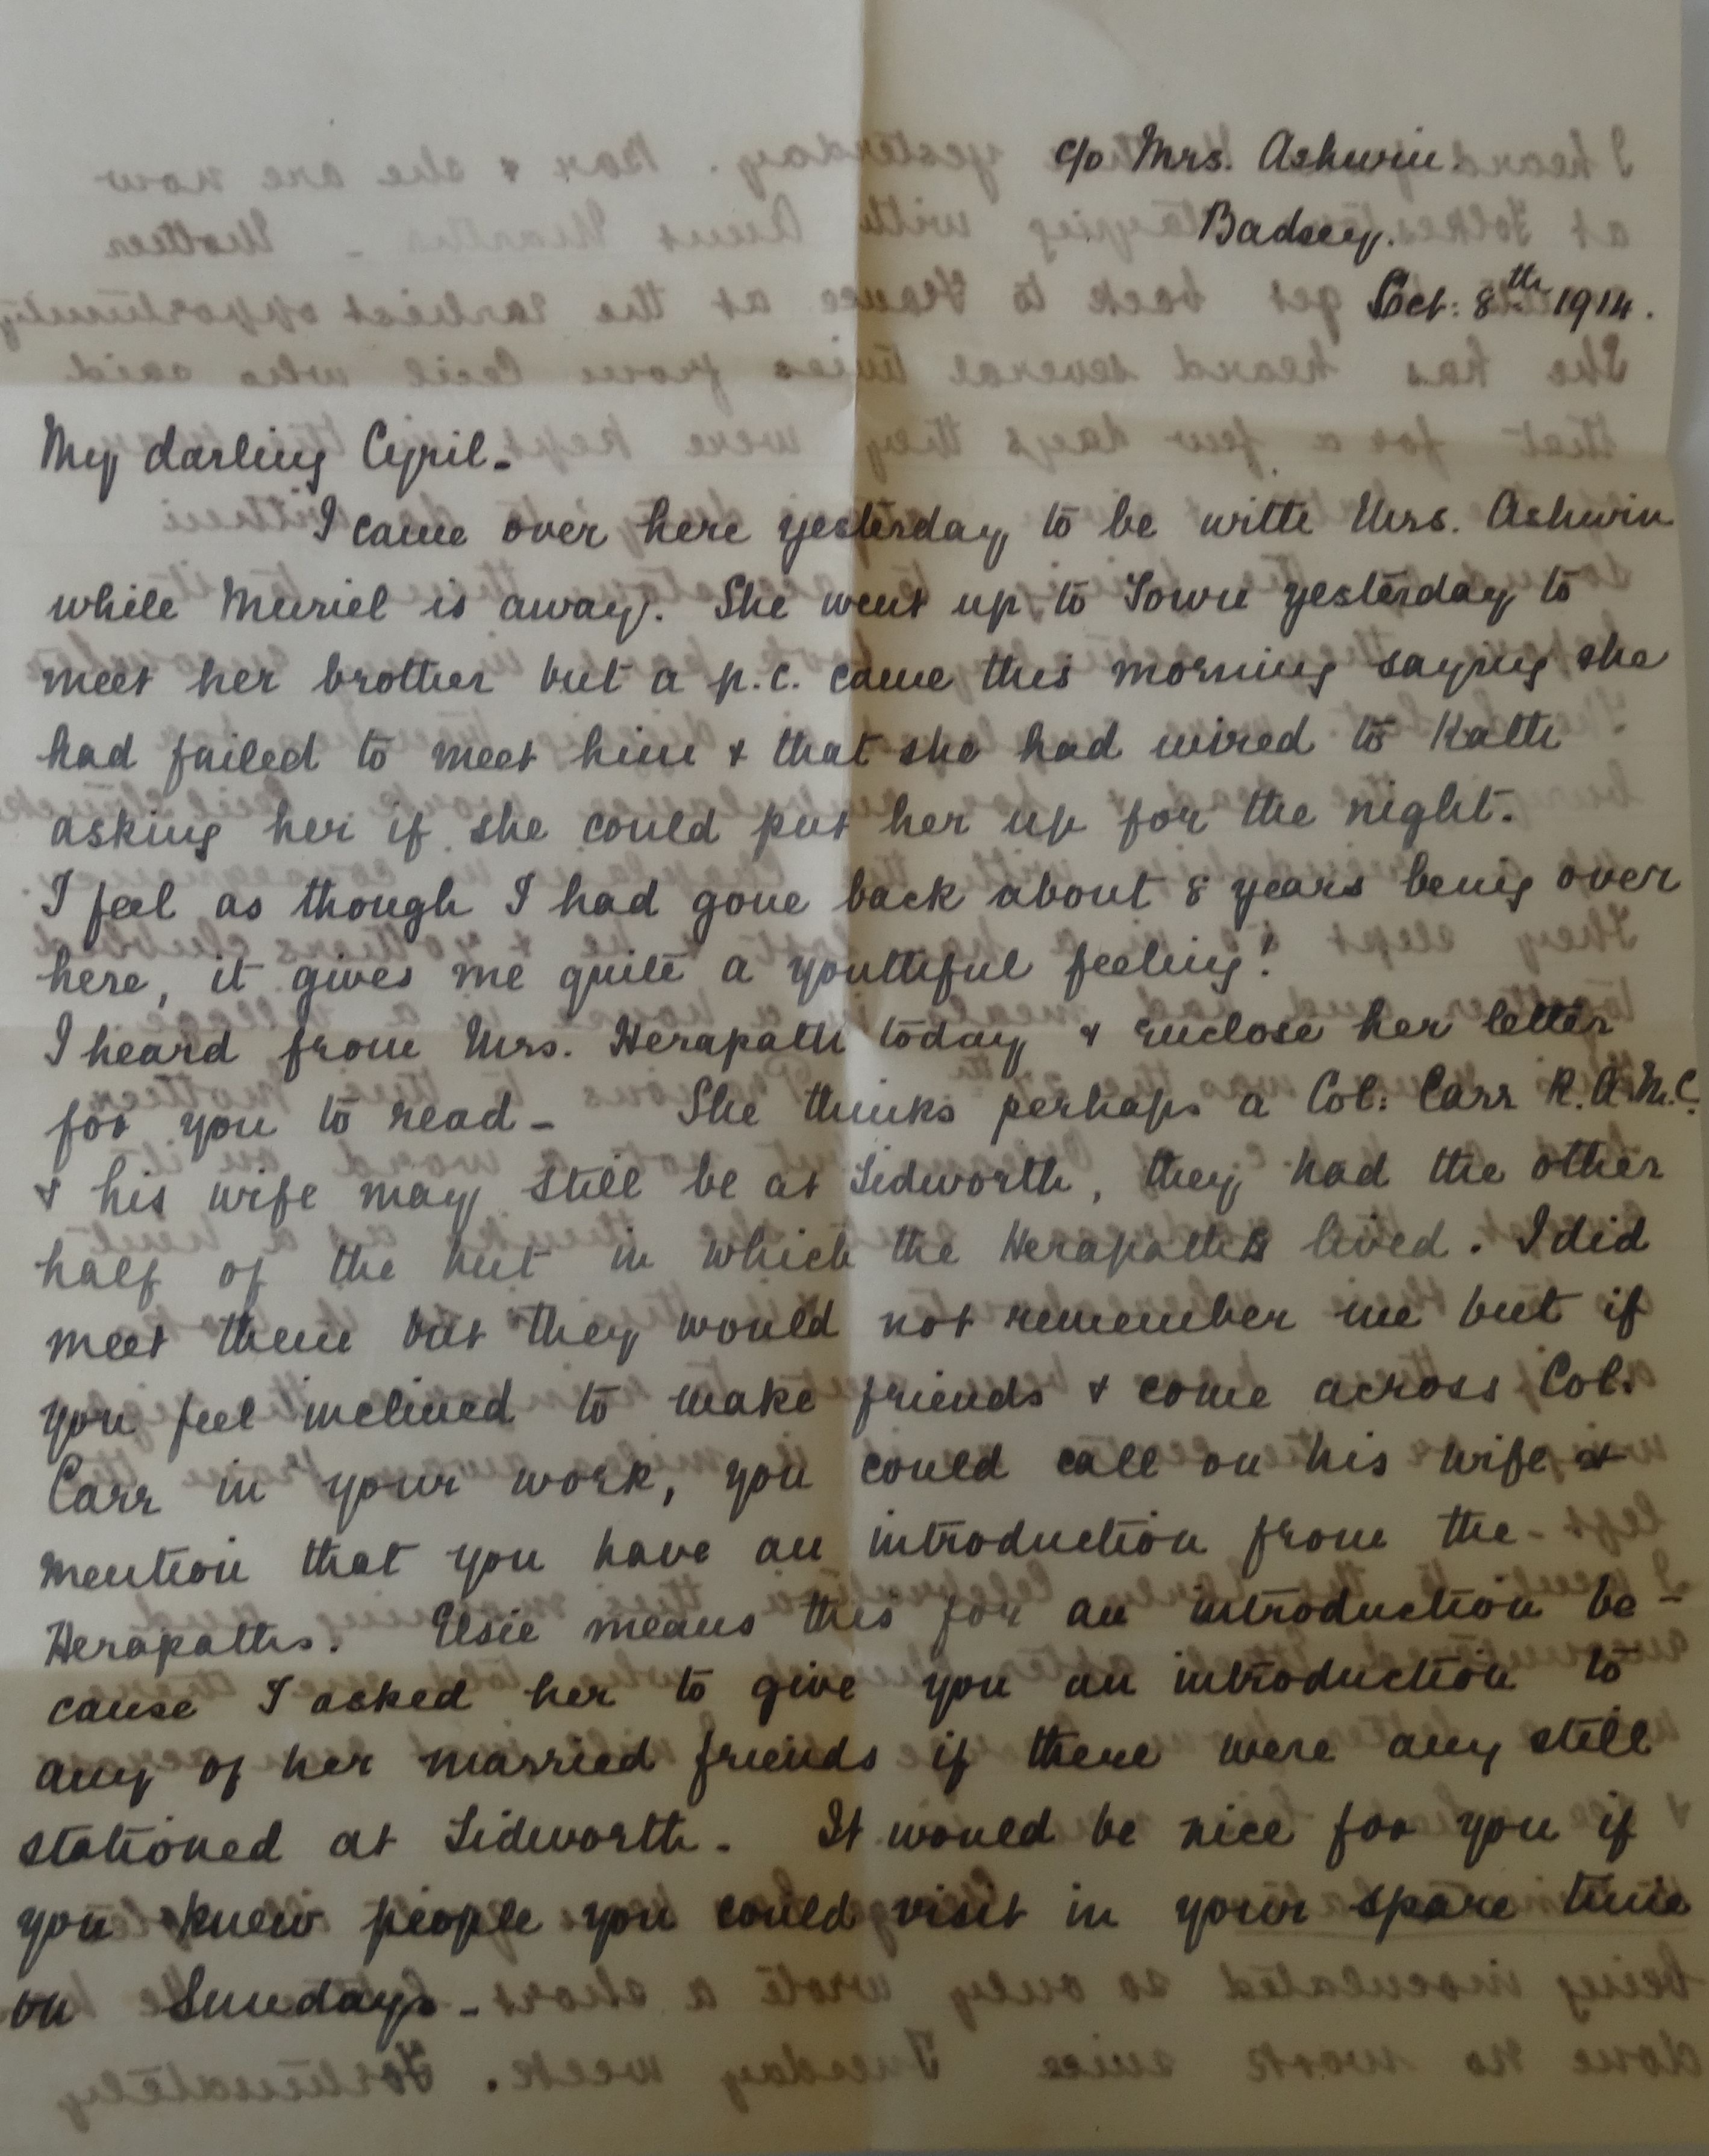 c/o Mrs. Ashwin.
Badsey.
Oct: 8th 1914.
My darling Cyril -
I came over here yesterday to be with Mrs. Ashwin
while Muriel is away. She went up to Town yesterday to
meet her brother but a p.c. came this morning saying she
had failed to meet him & that she had wired to Kath
asking her if she could put her up for the night.
I feel as though I had gone back about 8 years being over
here, it gives me quite a youthful feeling!
I heard from Mrs. Herapath today & enclose her letter
for you to read - She thinks perhaps a Col: Carr R.A.M.C.
& his wife may still be at Tidworth, they had the other
half of the hut in which the Herapaths lived. I did
meet them but they would not remember me but if
you feel inclined to make friends & come across Col.
Carr in your work, you could call on his wife &
mention that you have an introduction from the -
Herapaths. Elsie means this for an introduction be-
cause I asked her to give you an introduction to
any of her married friends if there were any still
stationed at Tidworth - It would be nice for you if
you knew people you could visit in your spare time
on Sundays -